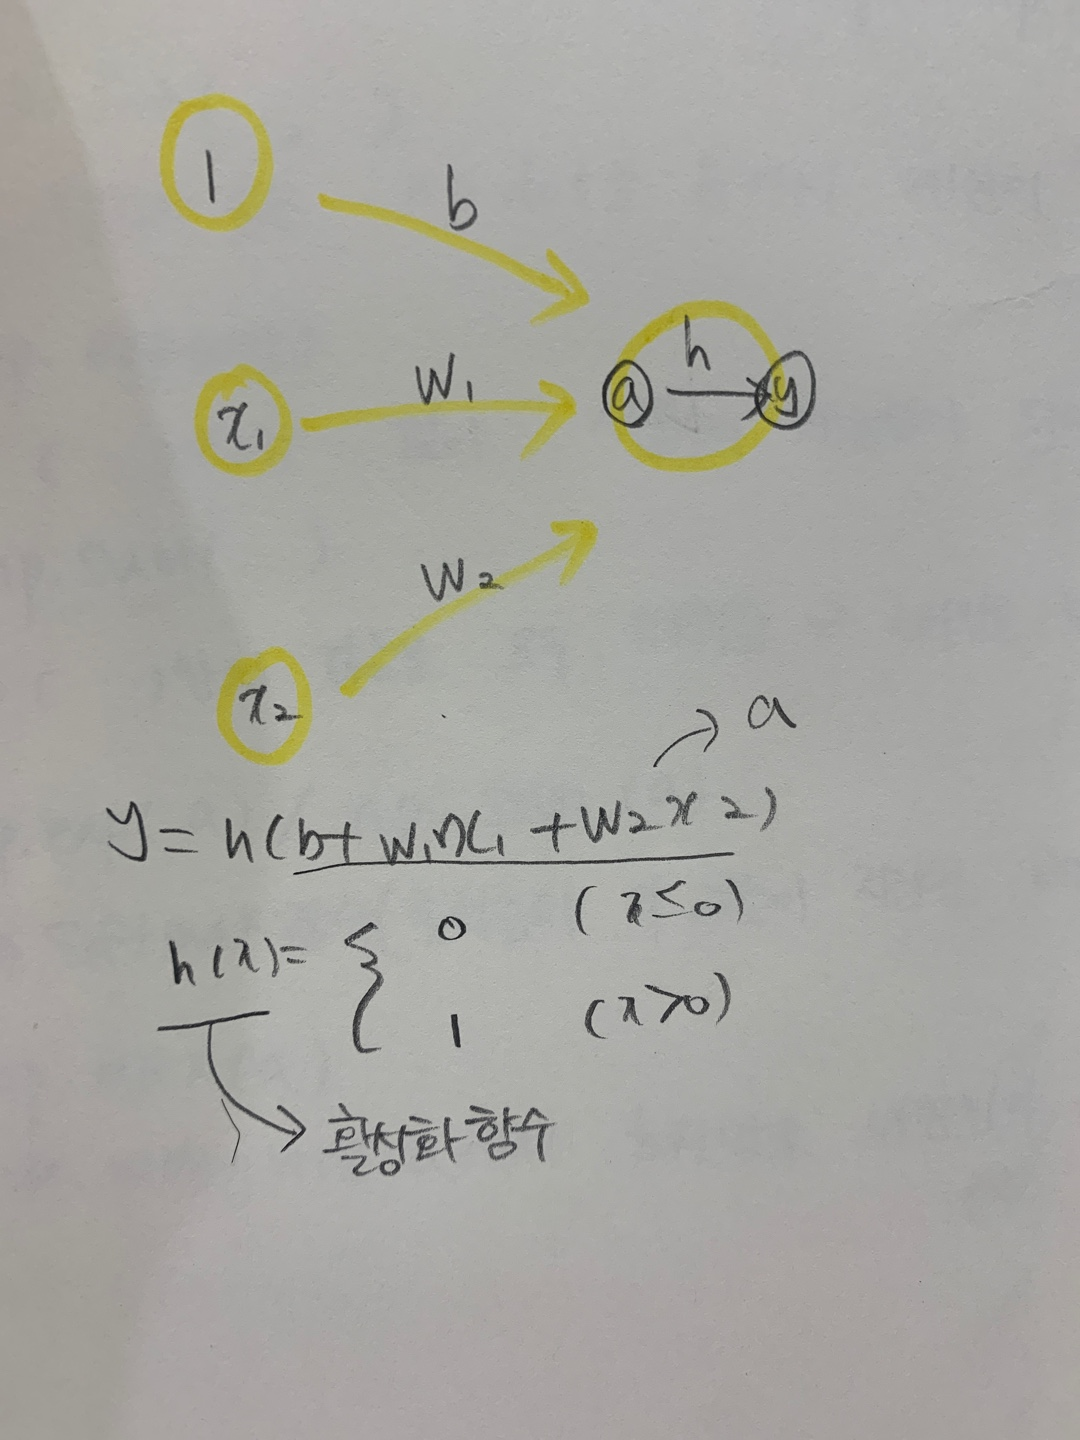 1
b
x₁
W₁
a
h
y
W₂
x₂
a
y = h(b+w₁x₁ +W₂x2)
h(x)= { 0 (x≤0)
1 (x>0)
활상화 함수